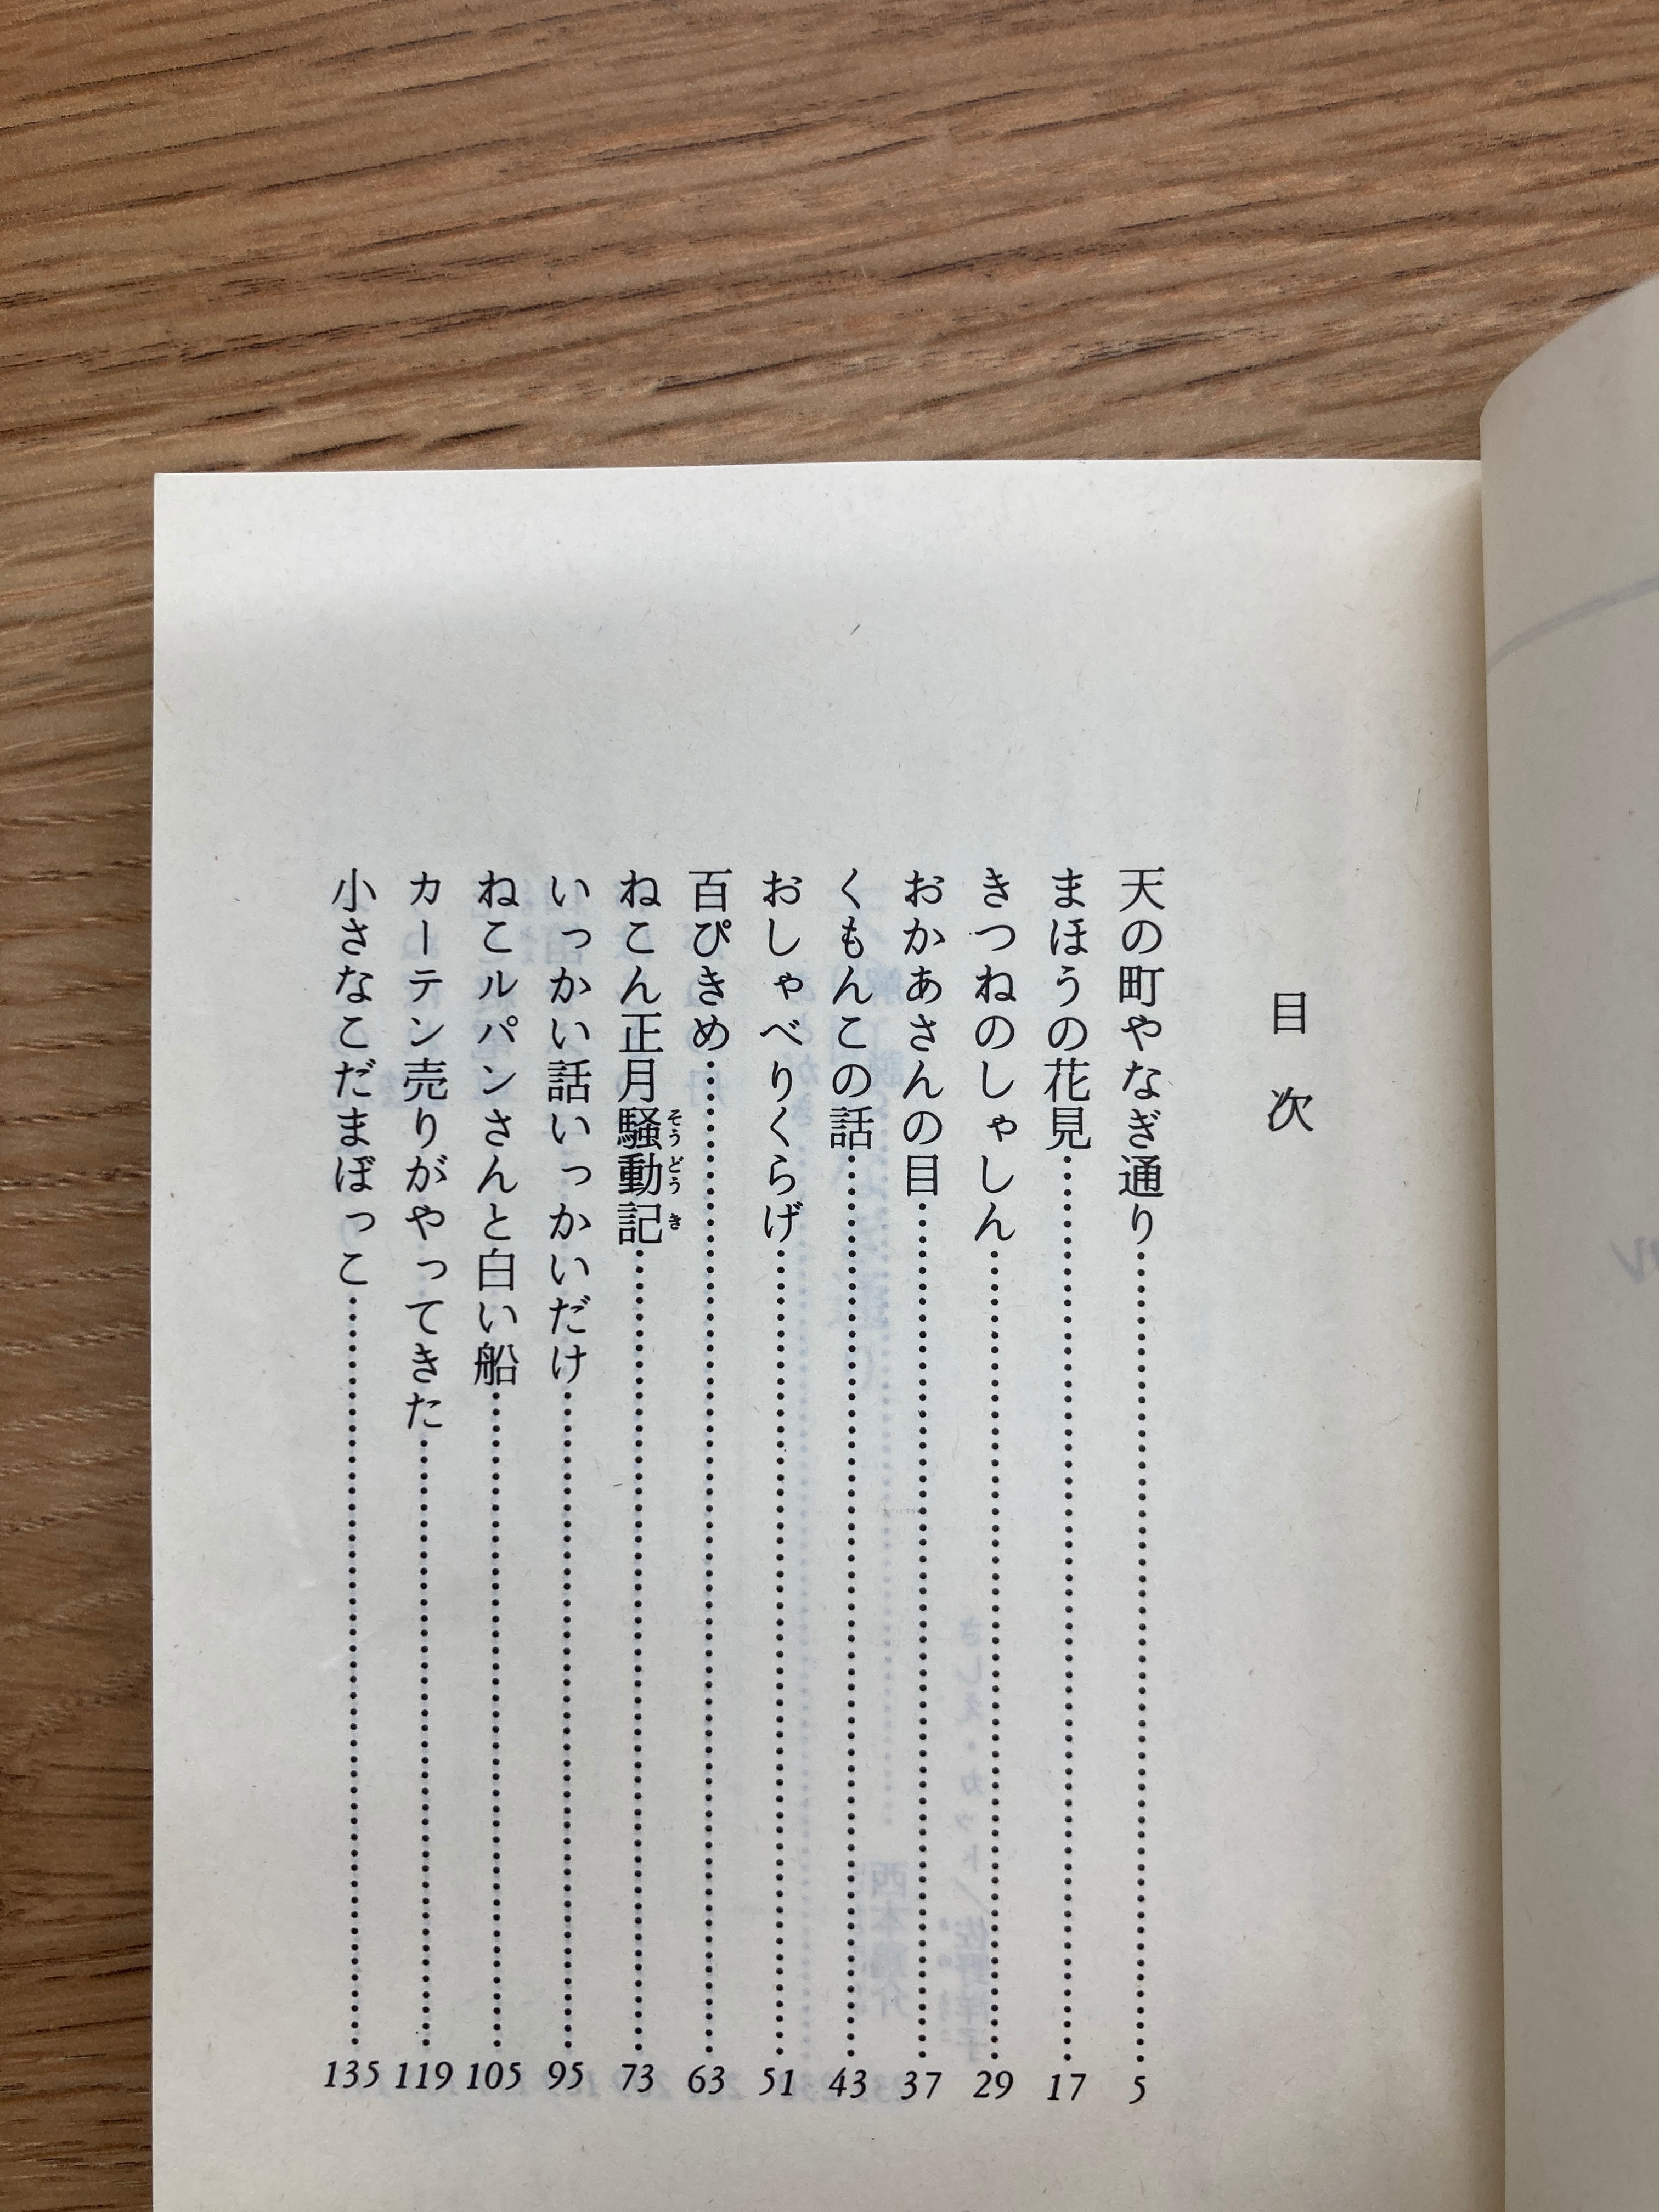 目次
天の町やなぎ通り……5
まほうの花見……17
きつねのしゃしん……29
おかあさんの目……37
くもんこの話……43
おしゃべりくらげ……51
百ぴきめ……63
ねこん正月騒動記……73
いっかい話いっかいだけ……95
ねこルパンさんと白い船……105
カーテン売りがやってきた……119
小さなこだまぼっこ……135